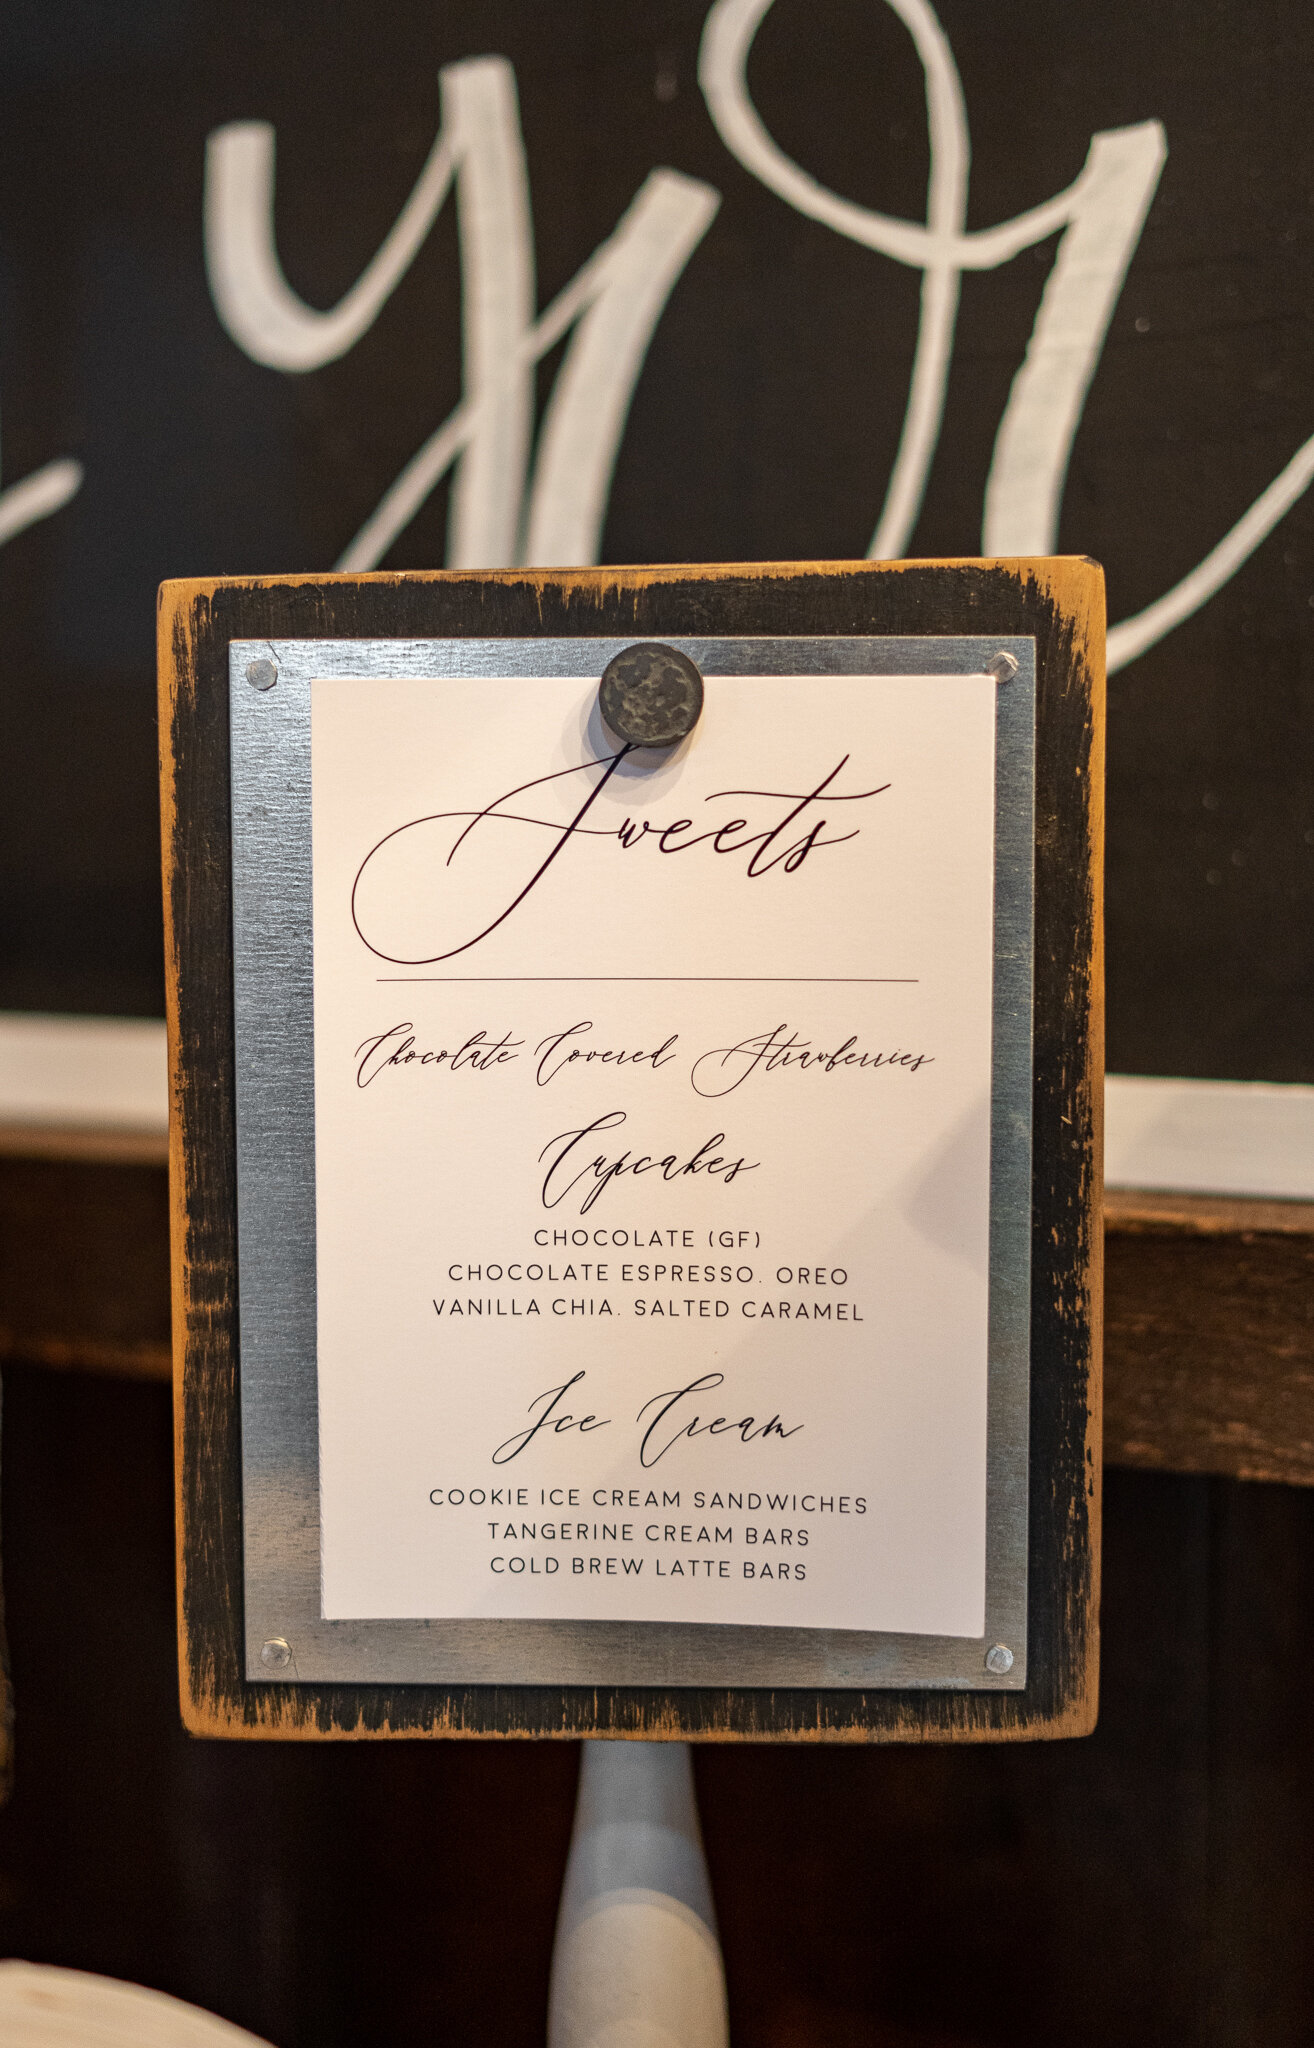 Sweets
Chocolate Covered Strawberries
Cupcakes
CHOCOLATE (GF)
CHOCOLATE ESPRESSO. OREO
VANILLA CHIA. SALTED CARAMEL
Ice Cream
COOKIE ICE CREAM SANDWICHES
TANGERINE CREAM BARS
COLD BREW LATTE BARS